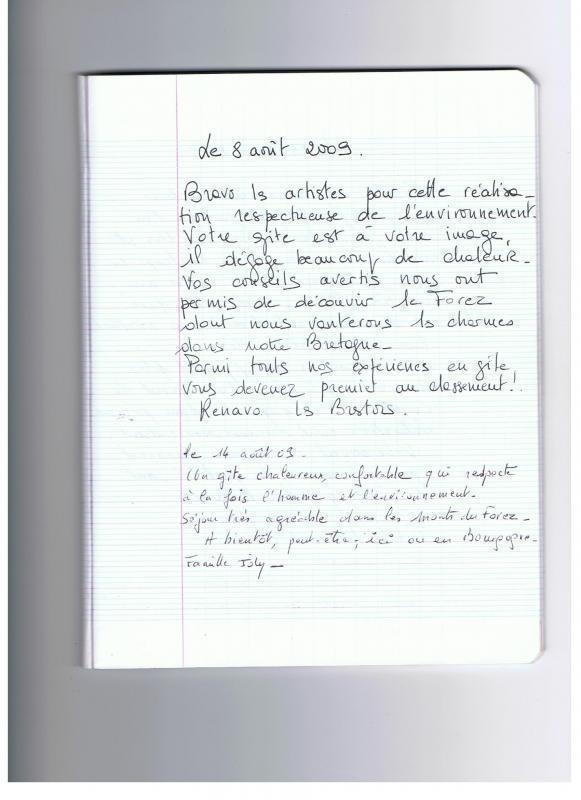 Le 8 août 2009.
Bravo ls artistes pour cette réalisa-
tion respectueuse de l'environnement.
Votre gîte est à votre image,
il dégage beaucoup de chaleur.
Vos conseils avertis nous ont
permis de découvrir le Forez
dont nous vanterons ls charmes
dans notre Bretagne.
Parmi touts nos expériences en gîte,
vous devenez premier au classement!
Kenavo ls Bretons.
Le 14 août 09.
Un gîte chaleureux, confortable qui respecte
à la fois l'homme et l'environnement.
Séjour très agréable dans les Monts du Forez.
A bientôt, peut-être, ici ou en Bourgogne.
Famille Joly